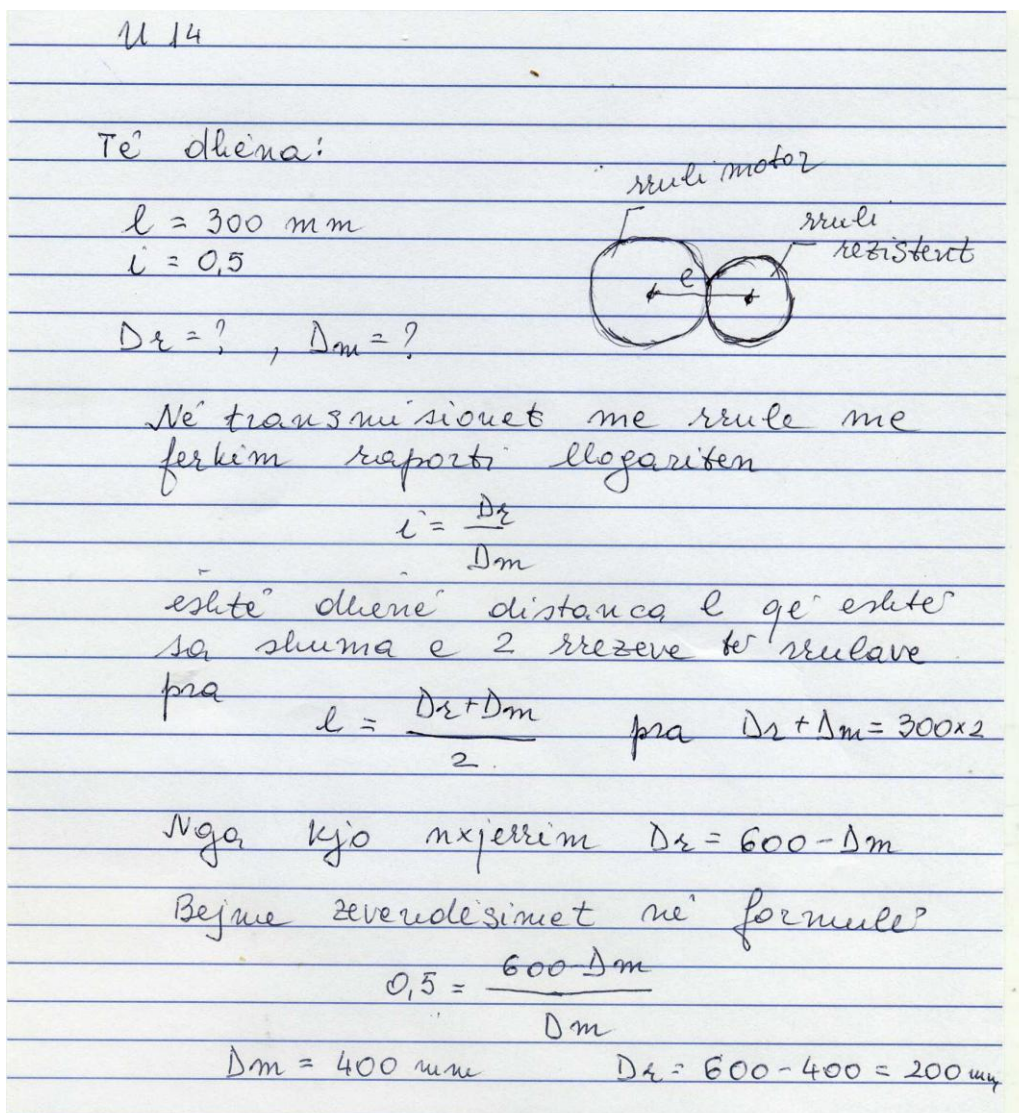 U 14
Të dhëna:
l = 300 mm
i = 0,5
rruli motor
rruli
rezistent
e
Dr = ? , Dm = ?
Në transmisionet me rrule me
ferkim raporti llogariten
i = Dr / Dm
eshtë dhënë distanca l që eshtë
sa shuma e 2 rrezeve të rrulave
pra
l = Dr + Dm / 2 pra Dr + Dm = 300 x 2
Nga kjo nxjerrim Dr = 600 - Dm
Bejme zevendësimet në formulë
0,5 = 600 - Dm / Dm
Dm = 400 mm Dr = 600 - 400 = 200 mm